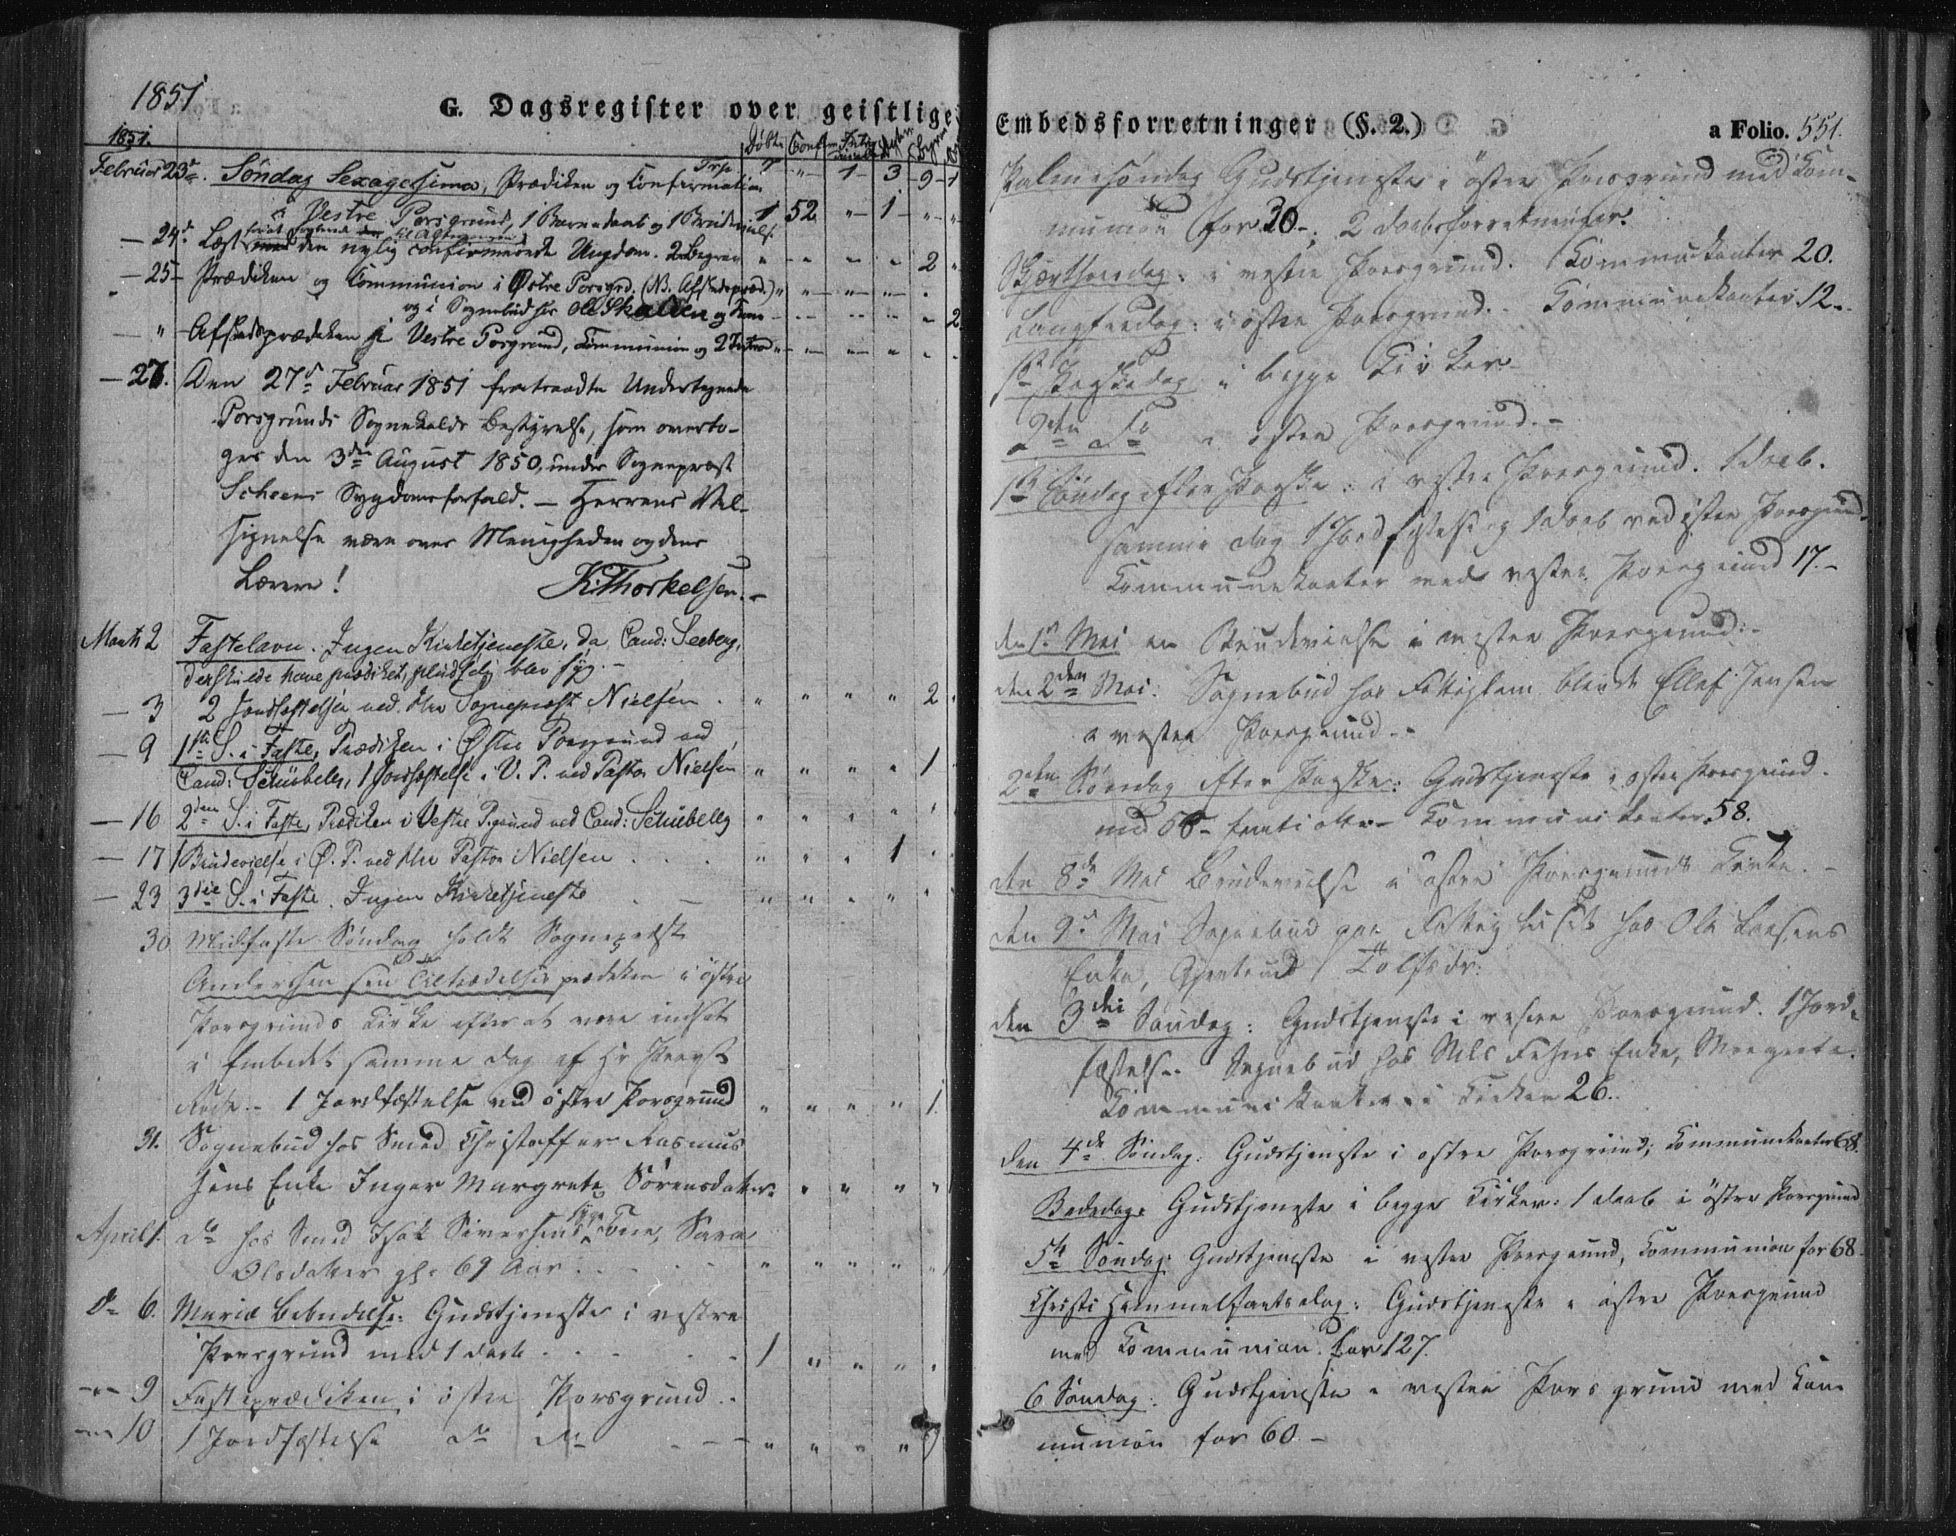 1851
G. Dagsregister over geistlige
1851. Døbte Conf.
Februar 23de. Søndag Sexagesima, Prædiken og Confirmation Trp 7 " 1 3 9 1
i Vestre Porsgrund, 1 Barnedaab og 1 Brudevielse 1 52 " 1 " "
— 24de Læst den nylig confirmerede Ungdom. 2 Begrav " " " " 2 "
— 25 Prædiken og Communion i Østre Porsgrd. (NB. Afskedspræd.) " " " " "
og i Sognebud hos Ole Skalleen og " " " " 2
— " Afskedsprædiken i Vestre Porsgrund, Communion og 2 " " " " "
— 27. Den 27de Februar 1851 fratraadte Undertegnede
Porsgrunds Sognekalds Bestyrelse, som overto-
ges den 3die August 1850, under Sognepræst
Scheens Sygdomsforfald. — Herrens Vel-
signelse være over Menigheden og dens
Lærere! K. Thorkelsen. —
Marts 2 Fastelavn. Ingen Kirketjeneste, da Cand: Seeberg,
der skulde have prædiket, pludselig blev syg. —
— 3 2 Jordfæstelser ved Hr Sognepræst Nielsen. " " " " 2 "
— 9 1ste S. i Faste, Prædiken i Østre Porsgrund ved
Cand: Schübeler, 1 Jordfæstelse i V. P. ved Pastor Nielsen " " " " 1 "
— 16 2den S. i Faste, Prædiken i Vestre P.grund ved Cand: Schübeler " " " " " "
— 17 1 Brudevielse i Ø. P. ved Hr Pastor Nielsen . . . " " " 1 " "
— 23 3die S. i Faste. Ingen Kirketjeneste . — " " " " " "
30 Midfaste Søndag holdt Sognepræst
Andersen sin Tiltrædelsesprædiken i østre
Porsgrunds Kirke efter at være indsat
i Embedet samme Dag af Hr Provst
Rode. – 1 Jordfæstelse ved østre Porsgrund " " " " 1.
31. Sognebud hos Smed Christoffer Rasmus
sens Enke Inger Margrete Sørensdatter. " " " "
April 1. do hos Smed Isak Sivertsens syge Kone, Sara
Olsdatter gl. 69 Aar . . . . " " " " "
do 6. Mariæ Bebudelse: Gudstjeneste i vestre
Porsgrund med 1 Daab . . . . 1 " " " "
— 9 Fasteprædiken i østre Porsgrund. –
— 10 1 Jordfæstelse do do . — — " " " "
Embedsforretninger (§. 2.) a Folio. 551.
Palmesøndag Gudstjeneste i østre Porsgrund med Kom-
munion for 30 –, 2 Daabsforretninger.
Skjærthorsdag: i vestre Porsgrund. Kommunikanter 20.
Langfredag: i østre Porsgrund. Kommunikanter 12.
1ste Paaskedag i begge Kirker –
2den do i østre Porsgrund. –
1ste Søndag efter Paaske: i vestre Porsgrund. 1 Daab.
Samme Dag 1 Jordfæstelse og 1 Daab ved østre Porsgrund.
Kommunikanter ved vestre Porsgrund 17. –
den 1ste Mai en Brudevielse i vestre Porsgrund. –
den 2den Mai: Sognebud hos Fattiglem blinde Ellef Jensen
i vestre Porsgrund. –
2den Søndag efter Paaske: Gudstjeneste i østre Porsgrund.
med Kommunikanter 58.
den 8de Mai Brudevielse i østre Porsgrunds Kirke. –
den 9de Mai Sognebud paa Fattighuset hos Ole Larsens
Enke, Gjertrud Tolfsdr:
den 3die Søndag: Gudstjeneste i vestre Porsgrund. 1 Jord-
fæstelse. Sognebud hos Nils Enke, Margrete.
Kommunikanter i Kirken 26.
den 4de Søndag: Gudstjeneste i østre Porsgrund; Kommunikanter 68.
Bededag: Gudstjeneste i begge Kirker: 1 Daab i østre Porsgrund
5te Søndag: Gudstjeneste i vestre Porsgrund, Kommunion for 68.
Christi Himmelfartsdag: Gudstjeneste i østre Porsgrund
med Kommunion for 127.
6 Søndag: Gudstjeneste i vestre Porsgrund med Kom-
munion for 60 –